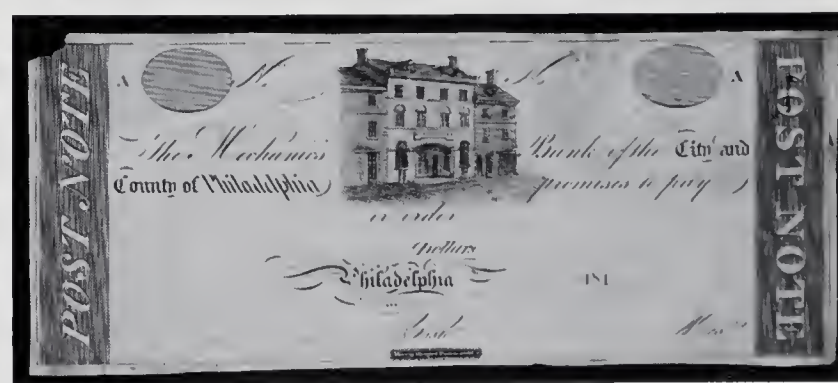 POST NOTE
A N.o N.o A
The Mechanics Bank of the City and
County of Philadelphia promises to pay
or order
Dollars
Philadelphia 181
Cash.r Pres.t
POST NOTE